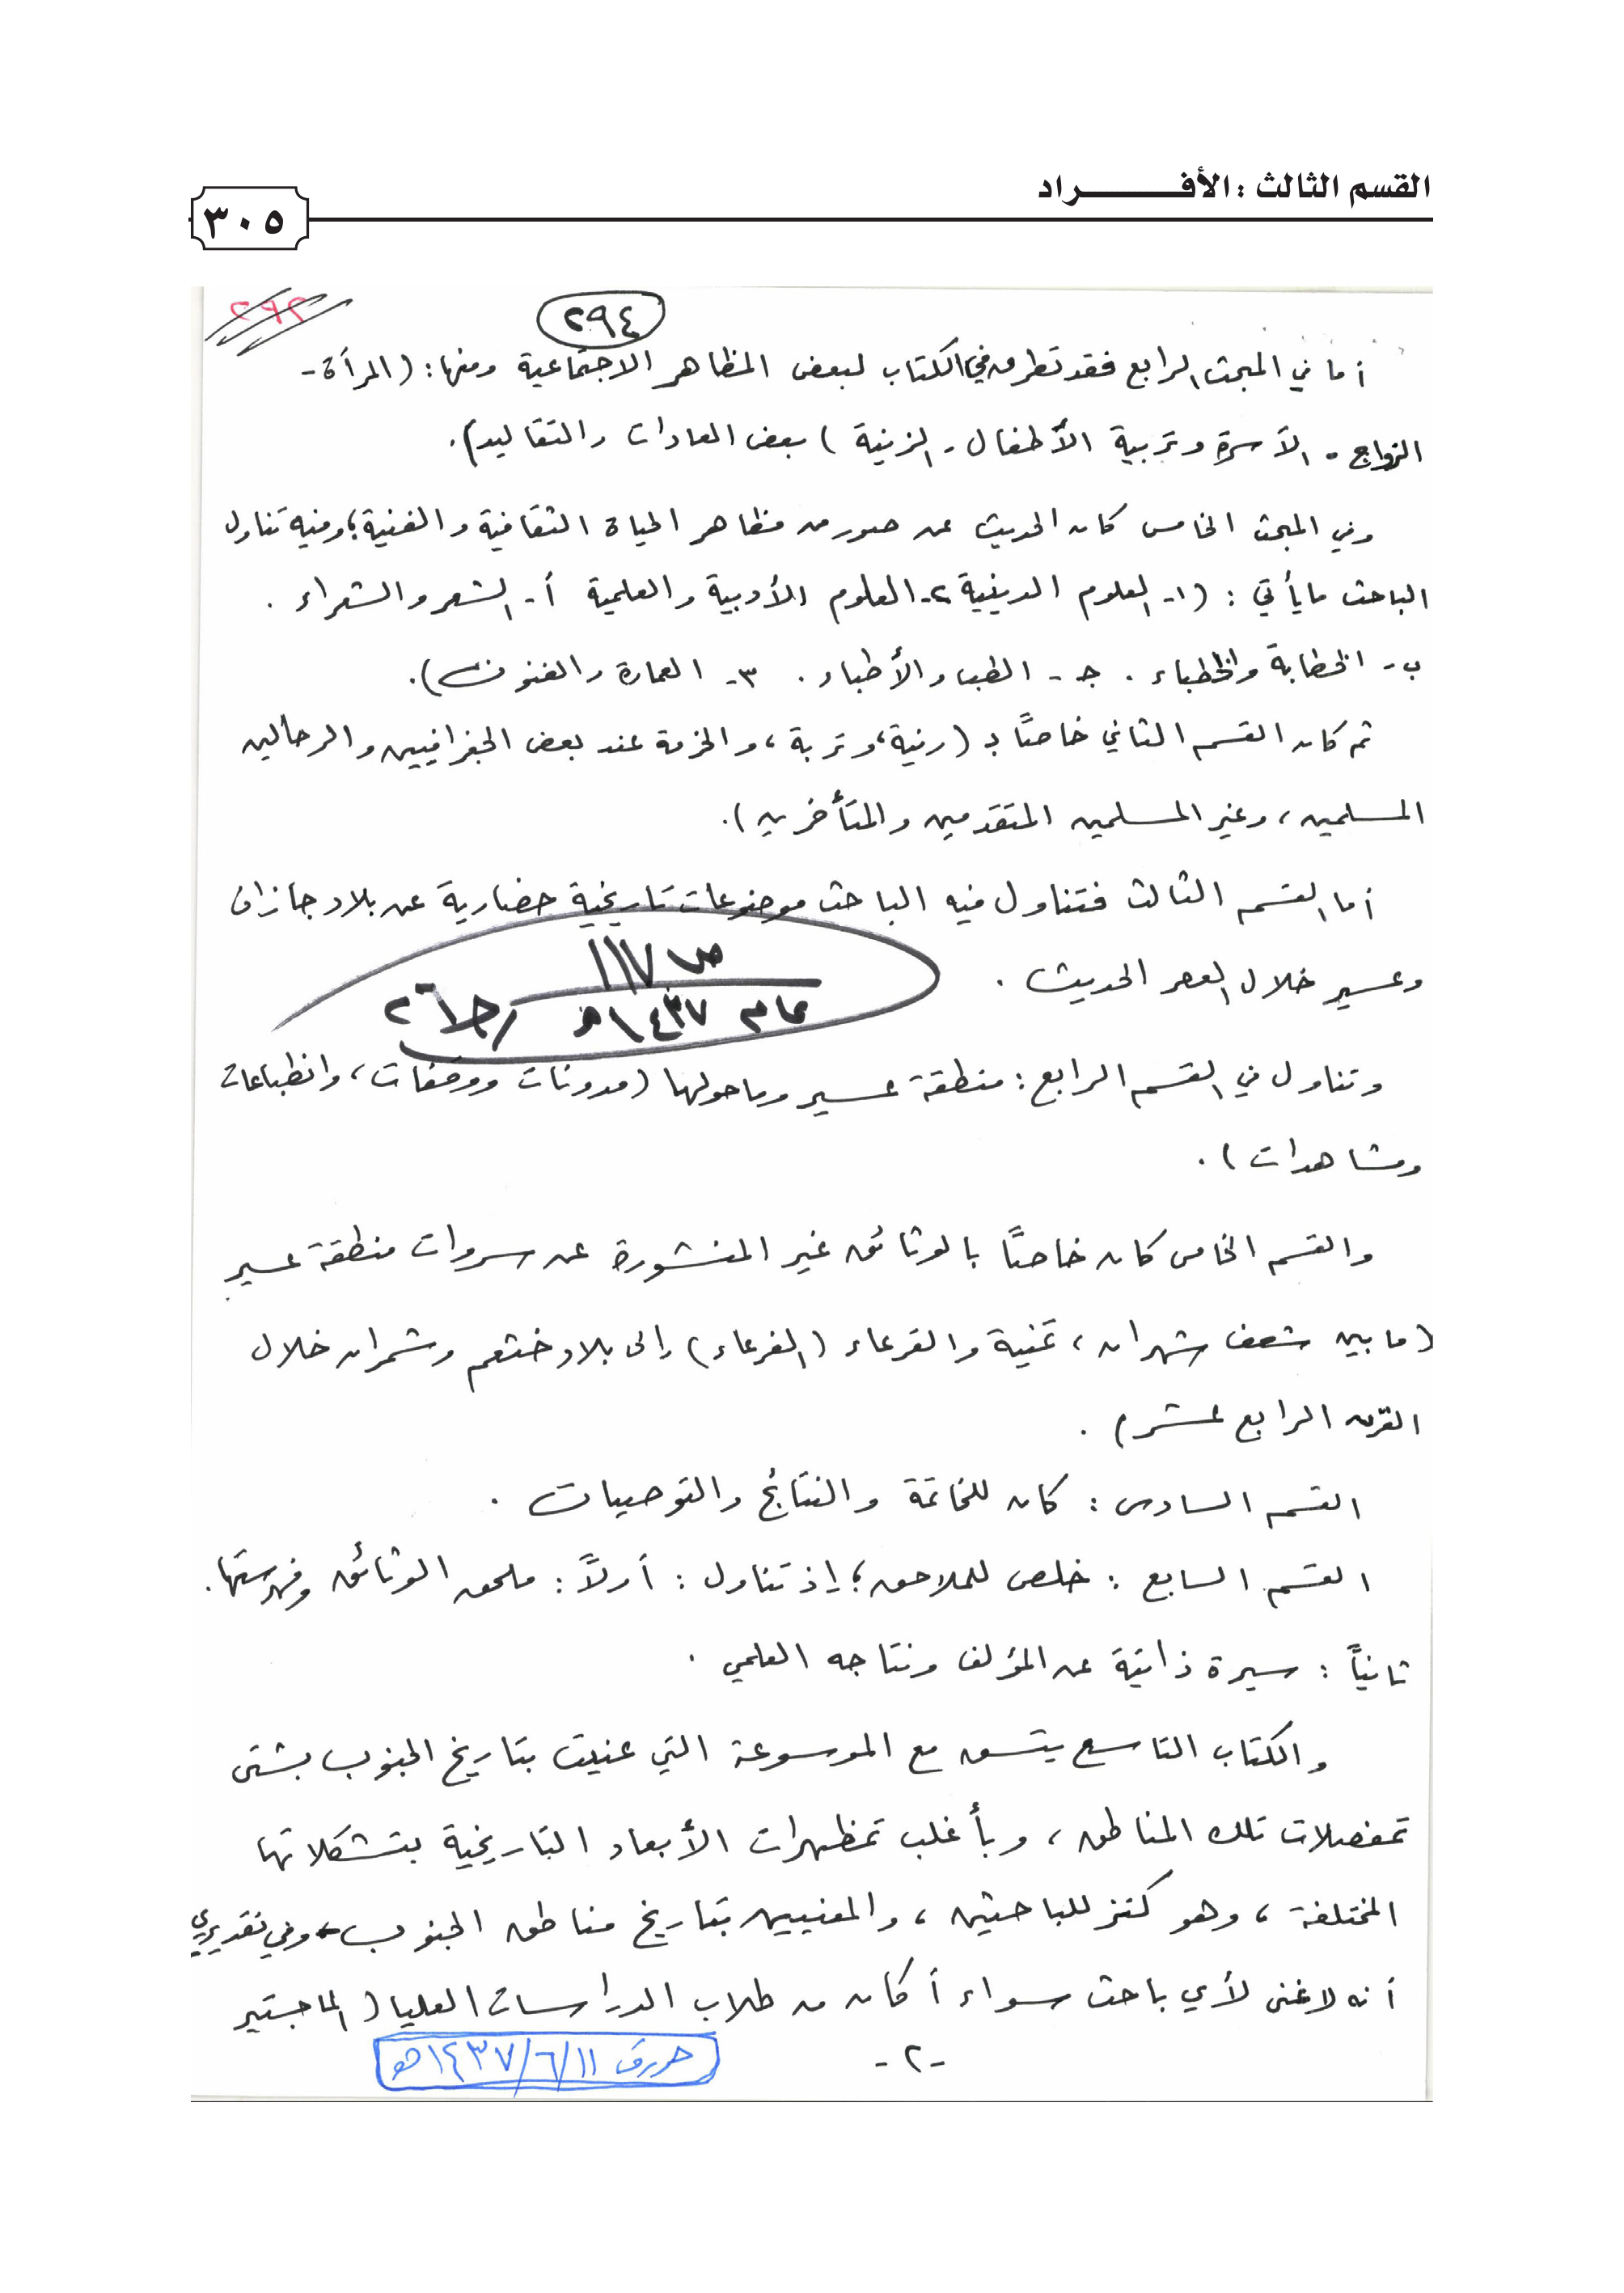 القسم الثالث : الأفـــــــراد
٣٠٥
٢٩٤
أما في المبحث الرابع فقد تطرق في الكتاب لبعض المظاهر الاجتماعية ومنها: (المرأة -
الزواج - الأسرة وتربية الأطفال - الزينة ) بعض العادات والتقاليد).
وفي المبحث الخامس كان الحديث عن صور من مظاهر الحياة الثقافية والفنية؛ وفيه تناول
الباحث مايأتي : (١- العلوم الدينية ٢- العلوم الأدبية والعلمية أ- الشعر والشعراء .
ب- الخطابة والخطباء . جـ - الطب والأطباء . ٣- العمارة والفنون).
ثم كان القسم الثاني خاصًا بـ (رنية، وتربة، والخرمة عند بعض الجغرافيين والرحالين
المسلمين، وغير المسلمين المتقدمين والمتأخرين ).
أما القسم الثالث فتناول فيه الباحث موضوعات تاريخية حضارية عن بلاد جازان
وعسير خلال العصر الحديث .
ص ١١٧
عام ١٤٣٧هـ / ج٢٦
وتناول في القسم الرابع : منطقة عسير وما حولها (مدونات ووقفات، وانطباعات
ومشاهدات ) .
والقسم الخامس كان خاصًا بالوثائق غير المنشورة عن سروات منطقة عسير
(ما بين شعف شهران ، تمنية والقرعاء (الفرعاء) إلى بلاد خثعم وشمران خلال
القرن الرابع عشر) .
القسم السادس : كان للخاتمة والنتائج والتوصيات .
القسم السابع : خلص للملاحق؛ إذ تناول : أولاً : ملحق الوثائق وفهرستها.
ثانياً : سيرة ذاتية عن المؤلف ونتاجه العلمي .
والكتاب التاسع يتسق مع الموسوعة التي عنيت بتاريخ الجنوب بشتى
تمفصلات تلك المناطق ، وبأغلب تمظهرات الأبعاد التاريخية بتشكلاتها
المختلفة ، وهو كنز للباحثين ، والمعنيين بتاريخ مناطق الجنوب، وفي تقديري
أنه لاغنى لأي باحث سواء أكان من طلاب الدراسات العليا ( الماجستير
-٢-
١٤٣٧/٦/١١هـ